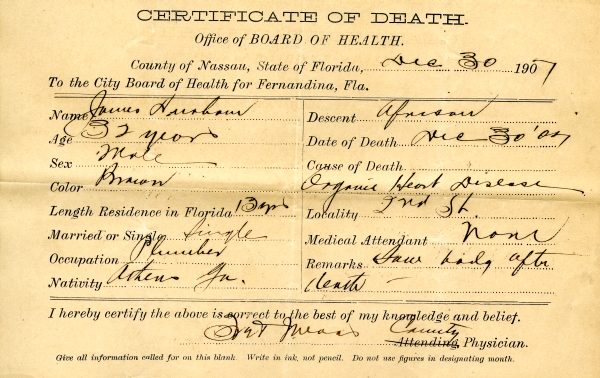 CERTIFICATE OF DEATH.
Office of BOARD OF HEALTH.
County of Nassau, State of Florida, Dec 30 1907
To the City Board of Health for Fernandina, Fla.
Name James
Age 32 years
Sex Male
Color Brown
Length Residence in Florida 13 yrs
Married or Single Single
Occupation Plumber
Nativity Athens Ga.
Descent African
Date of Death Dec 30 '07
Cause of Death
Organic Heart Disease
Locality 2nd St.
Medical Attendant None
Remarks Saw body after
death –
I hereby certify the above is correct to the best of my knowledge and belief.
County
Attending Physician.
Give all information called for on this blank. Write in ink, not pencil. Do not use figures in designating month.